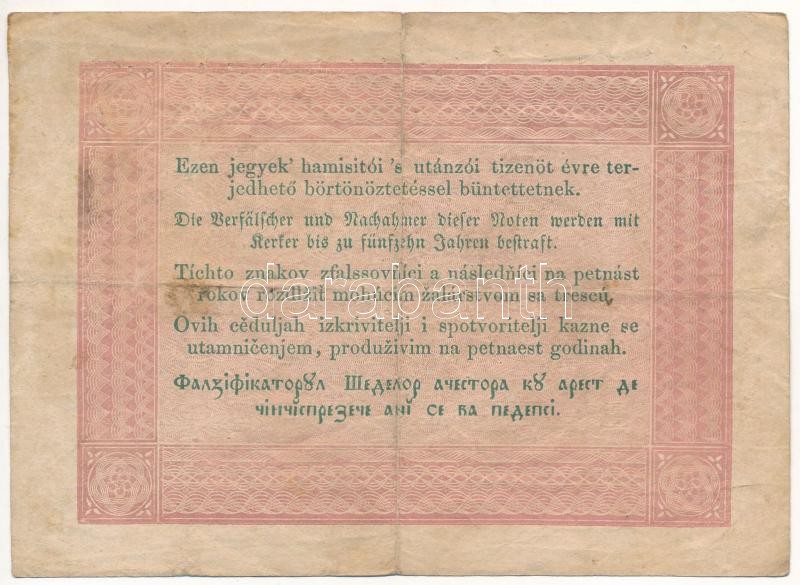 Ezen jegyek' hamisitói 's utánzói tizenöt évre ter-
jedhető börtönöztetéssel büntettetnek.
Die Verfälscher und Nachahmer dieser Noten werden mit
Kerker bis zu fünfzehn Jahren bestraft.
Tíchto znakov zfalssovňíci a následňíci na petnást
rokov rozdlžiť mohúcim žalárstvom sa trescú,
darabanth
Ovih cěduljah izkrivitelji i spotvoritelji kazne se
utamničenjem, produživim na petnaest godinah.
Фалзіфікаторꙋл Шеделор ачестора кꙋ арест де
чінчіспрезече ані се ва педепсі.